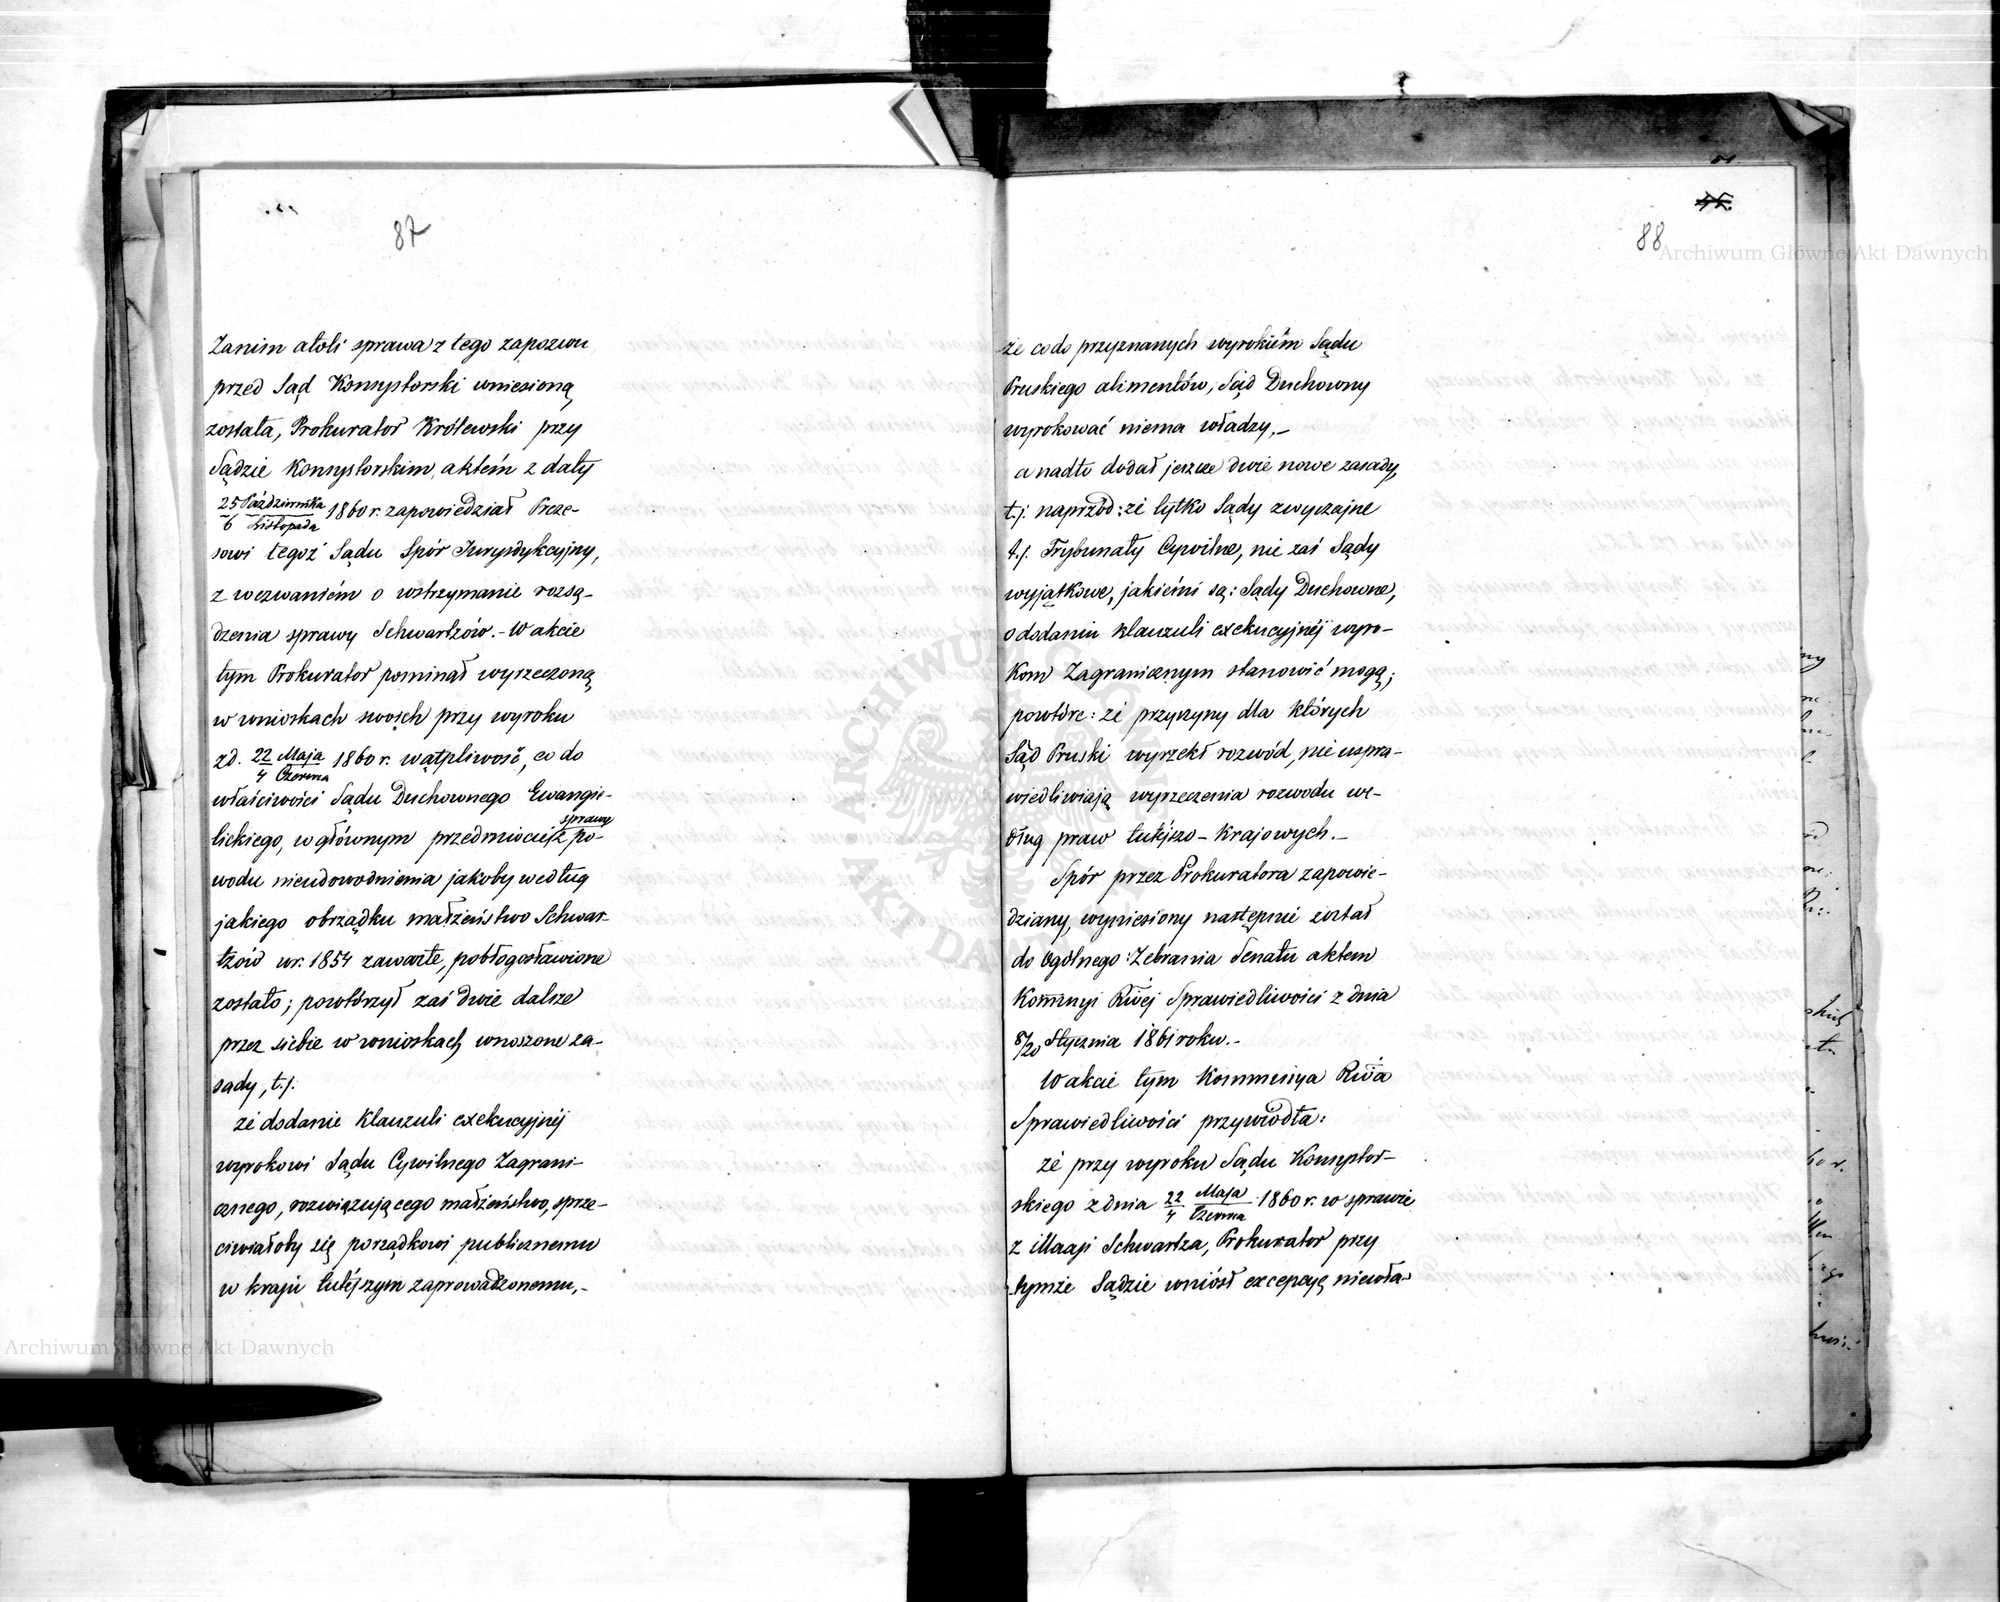 87
Zanim atoli sprawa z tego zapozwu
przed Sąd Konsystorski wniesioną
została, Prokurator Królewski przy
Sądzie Konsystorskim, aktem z daty
25 Października / 6 Listopada 1860 r. zapowiedział Preze-
sowi tegoż Sądu Spór Jurysdykcyjny,
z wezwaniem o wstrzymanie rozsą-
dzenia sprawy Schwartzów. - W akcie
tym Prokurator pominął wyrzeczoną
w wnioskach swoich przy wyroku
z d. 22 Maja / 4 Czerwca 1860 r. wątpliwość, co do
właściwości Sądu Duchownego Ewangie-
lickiego, w głównym przedmiocie sprawy z po-
wodu nieudowodnienia jakoby według
jakiego obrządku małżeństwo Schwar-
tzów w r. 1854 zawarte, pobłogosławione
zostało; powtórzył zaś dwie dalsze
przez siebie w wnioskach wnoszone za-
sady, t.j.
że dodanie klauzuli exekucyjnéj
wyrokowi Sądu Cywilnego Zagrani-
cznego, rozwiązującego małżeństwo, sprze-
ciwiałoby się porządkowi publicznemu
w kraju tutéjszym zaprowadzonemu, -
88
że co do przyznanych wyrokiem Sądu
Pruskiego alimentów, Sąd Duchowny
wyrokować niema władzy, -
a nadto dodał jeszcze dwie nowe zasady,
t.j. naprzód: że tylko Sądy zwyczajne
t.j. Trybunały Cywilne, nie zaś Sądy
wyjątkowe, jakiemi są: Sądy Duchowne,
o dodaniu klauzuli exekucyjnéj wyro-
kom Zagranicznym stanowić mogą;
powtóre: że przyczyny dla których
Sąd Pruski wyrzekł rozwód, nie uspra-
wiedliwiają wyrzeczenia rozwodu we-
dług praw tutéjszo-krajowych. -
Spór przez Prokuratora zapowie-
dziany, wyniesiony następnie został
do Ogólnego Zebrania Senatu aktem
Kommyi Rwéj Sprawiedliwości z dnia
8/20 Stycznia 1861 roku. -
W akcie tym Kommissya Rwa
Sprawiedliwości przywiodła:
że przy wyroku Sądu Konsystor-
skiego z dnia 22 Maja / 4 Czerwca 1860 r. w sprawie
z illacji Schwartza, Prokurator przy
tymże Sądzie wniósł excepcyę niewła-
Archiwum Główne Akt Dawnych
Archiwum Główne Akt Dawnych